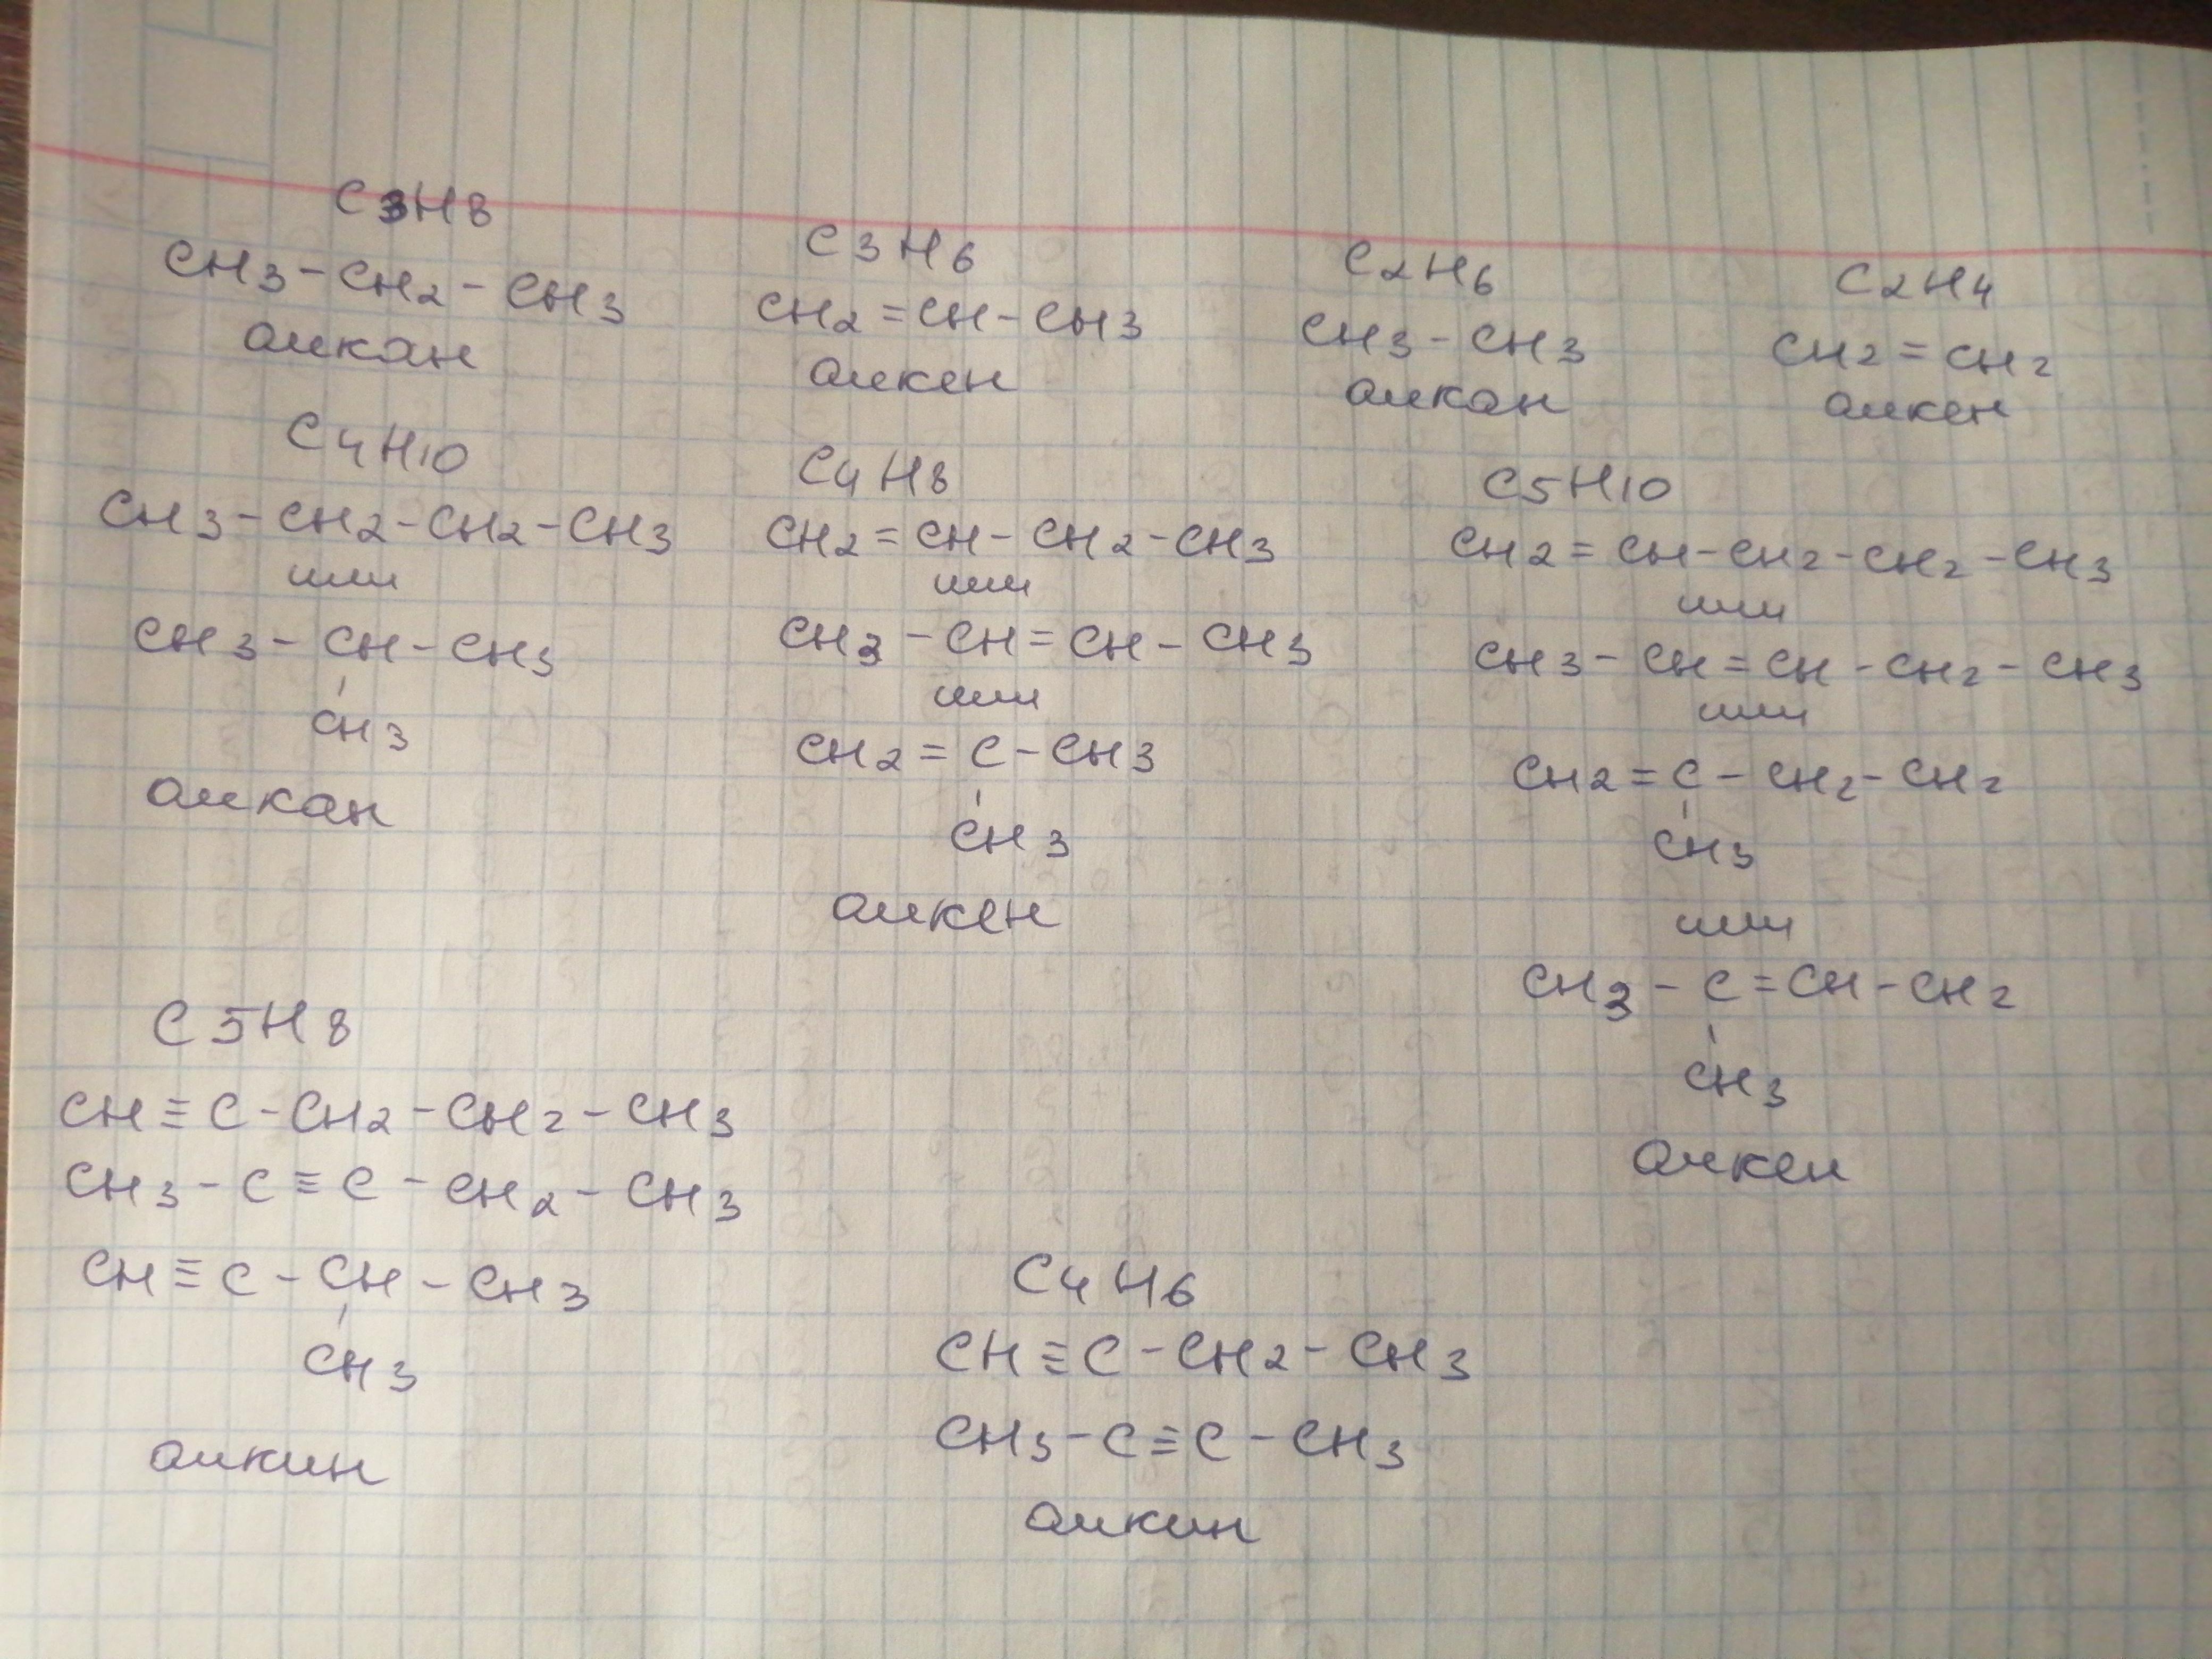 C3H8
CH3-CH2-CH3
алкан
C3H6
CH2=CH-CH3
алкен
C2H6
CH3-CH3
алкан
C2H4
CH2=CH2
алкен
C4H10
CH3-CH2-CH2-CH3
или
CH3-CH-CH3
CH3
алкан
C4H8
CH2=CH-CH2-CH3
или
CH3-CH=CH-CH3
или
CH2=C-CH3
CH3
алкен
C5H10
CH2=CH-CH2-CH2-CH3
или
CH3-CH=CH-CH2-CH3
или
CH2=C-CH2-CH2
CH3
или
CH3-C=CH-CH2
CH3
алкен
C5H8
CH≡C-CH2-CH2-CH3
CH3-C≡C-CH2-CH3
CH≡C-CH-CH3
CH3
алкин
C4H6
CH≡C-CH2-CH3
CH3-C≡C-CH3
алкин